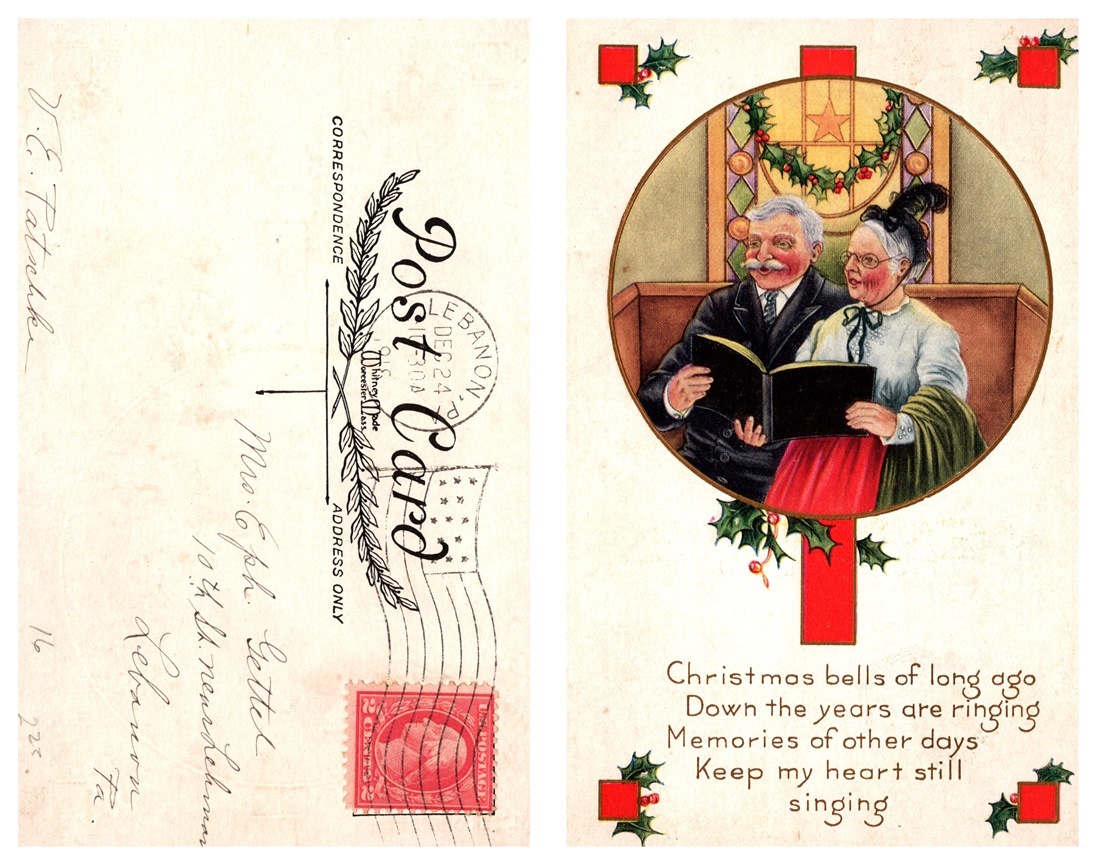 V. E. Patschke
CORRESPONDENCE
Post Card
ADDRESS ONLY
Whitney Made
Worcester, Mass.
LEBANON, P
DEC 24
11-30A
Mrs. Eph. Gettel
10th St. near Lehman
Lebanon
Pa.
16
225.
U.S. POSTAGE
2 CENTS 2
Christmas bells of long ago
Down the years are ringing
Memories of other days
Keep my heart still
singing